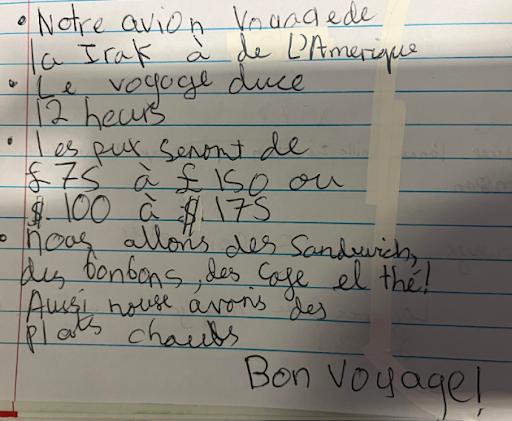 • Notre avion Vouagede
la Irak à de L'Amerique
• Le voyage duce
12 heurs
• les pux seront de
£75 à £150 ou
$.100 à $.175
• nous allons des Sandwich,
des bonbons, des Cafe et thé!
Aussi nouse avons des
plats chauds
Bon Voyage!